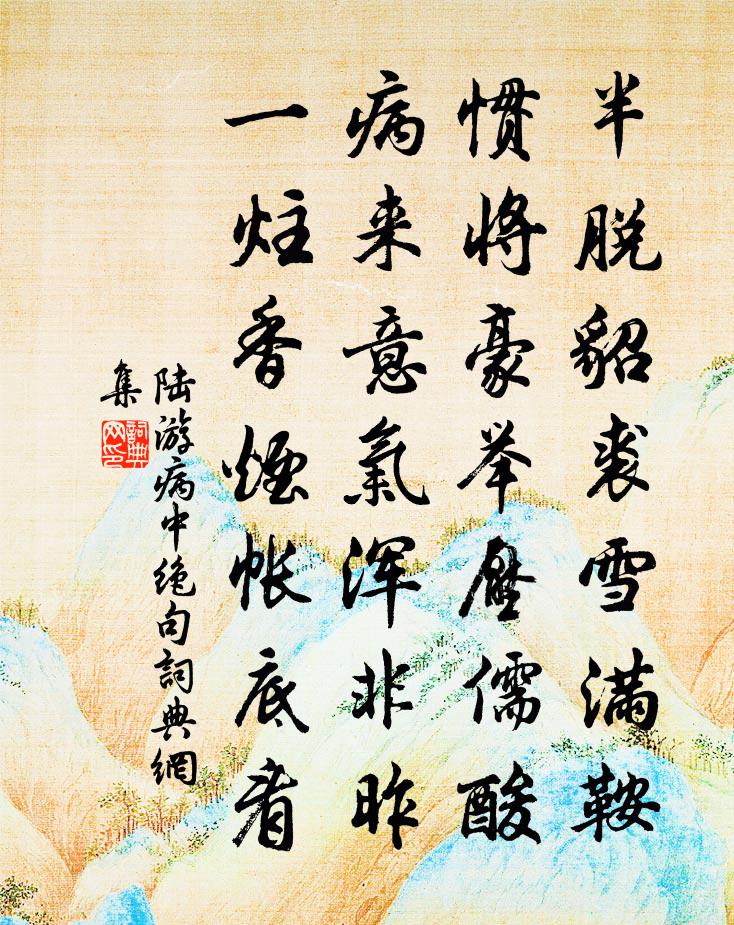 半脱貂裘雪满鞍
惯将豪举压儒酸
病来意氣浑非昨
一炷香煙帐底看
陆游病中绝句詞典網
集
詞典
网印